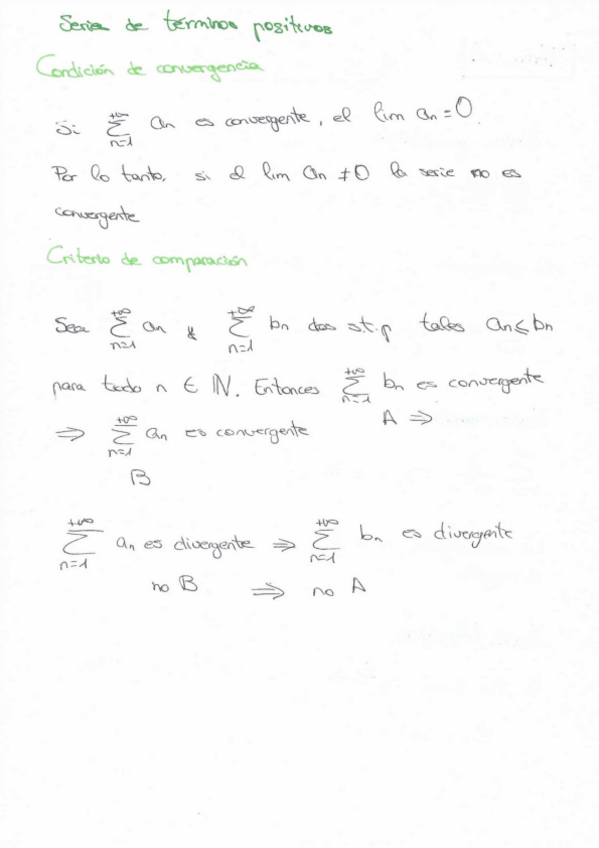 Series de términos positivos
Condición de convergencia
Si ∑_{n=1}^{+∞} an es convergente, el lim an = 0.
Por lo tanto, si el lim an ≠ 0 la serie no es
convergente
Criterio de comparación
Sea ∑_{n=1}^{+∞} an y ∑_{n=1}^{+∞} bn dos st.p tales an ≤ bn
para todo n ∈ ℕ. Entonces ∑_{n=1}^{+∞} bn es convergente
⇒ ∑_{n=1}^{+∞} an es convergente A ⇒
B
∑_{n=1}^{+∞} an es divergente ⇒ ∑_{n=1}^{+∞} bn es divergente
no B ⇒ no A